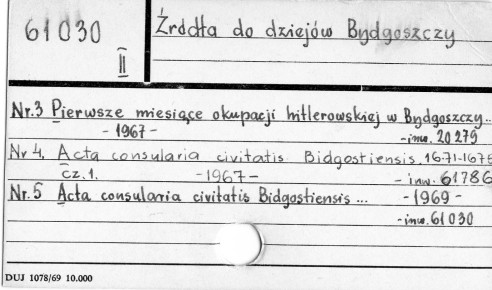 61030
II
Źródła do dziejów Bydgoszczy
Nr.3 Pierwsze miesiące okupacji hitlerowskiej w Bydgoszczy..
- 1967 -
- inw. 20279
Nr 4. Acta consularia civitatis Bidgostiensis, 1671-1675
cz. 1. - 1967 - - inw. 61786
Nr. 5 Acta consularia civitatis Bidgostiensis ... - 1969 -
- inw. 61030
DUJ 1078/69 10.000